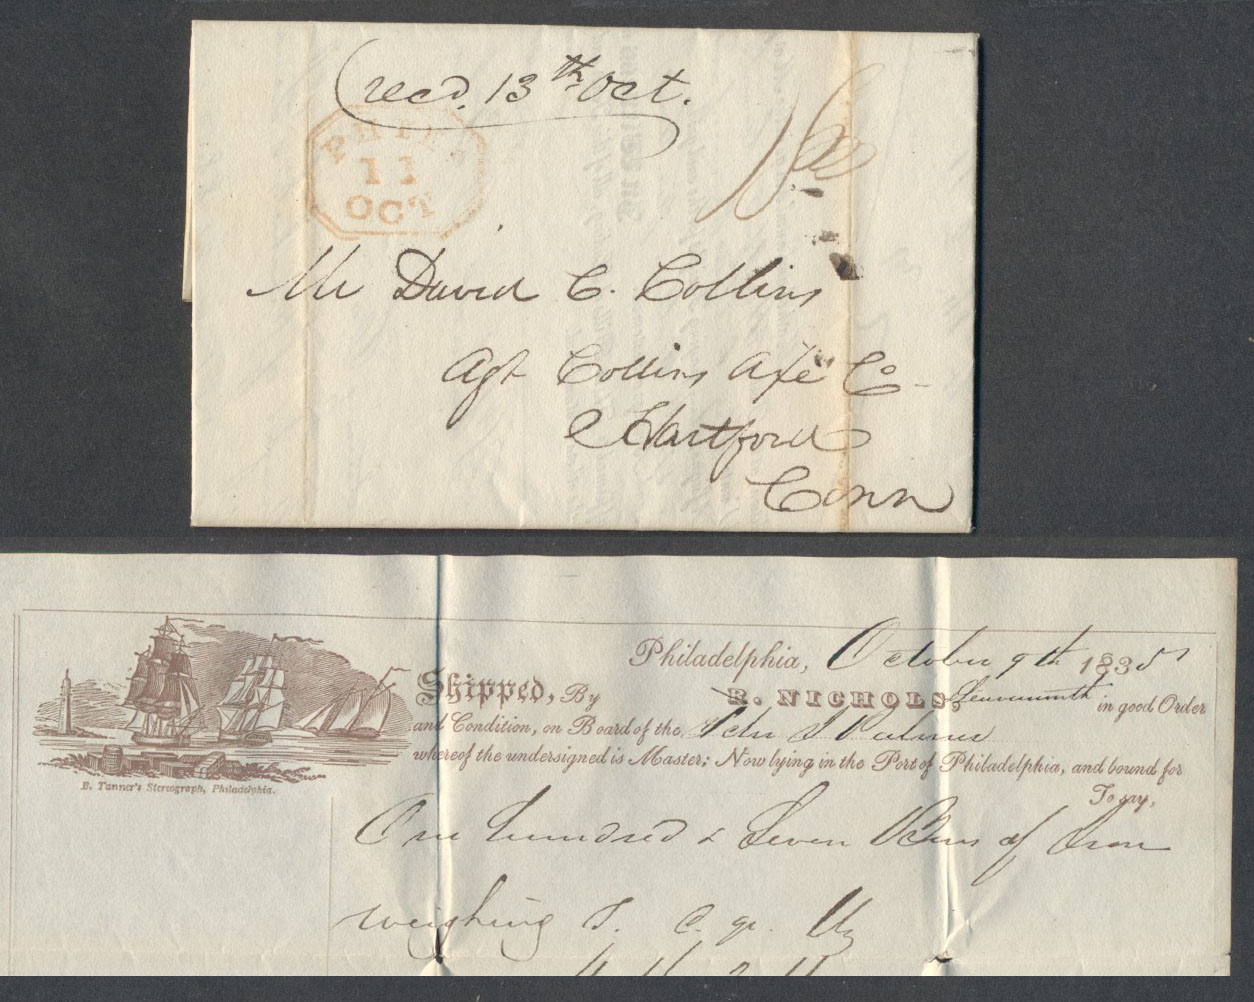 recd. 13th Oct.
PHILA
11
OCT
Mr David C. Collins
Agt Collins Axe Co
Hartford
Conn
Philadelphia, October 9th 1835
Shipped, By R. NICHOLS, in good Order
and Condition, on Board of the John
whereof the undersigned is Master; Now lying in the Port of Philadelphia, and bound for
To say,
B. Tanner's Stereograph, Philadelphia.
One hundred & Seven Bars of Iron
weighing T. C. qr. lb